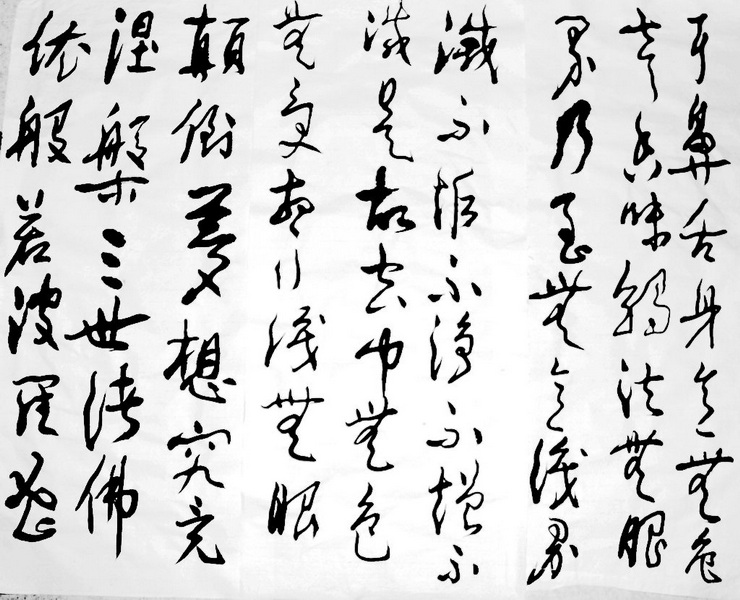 耳鼻舌身意無色
聲香味觸法無眼
界乃至無意識界
滅不垢不淨不增不
減是故空中無色
無受想行識無眼
顛倒夢想究竟
涅槃三世諸佛
依般若波羅蜜